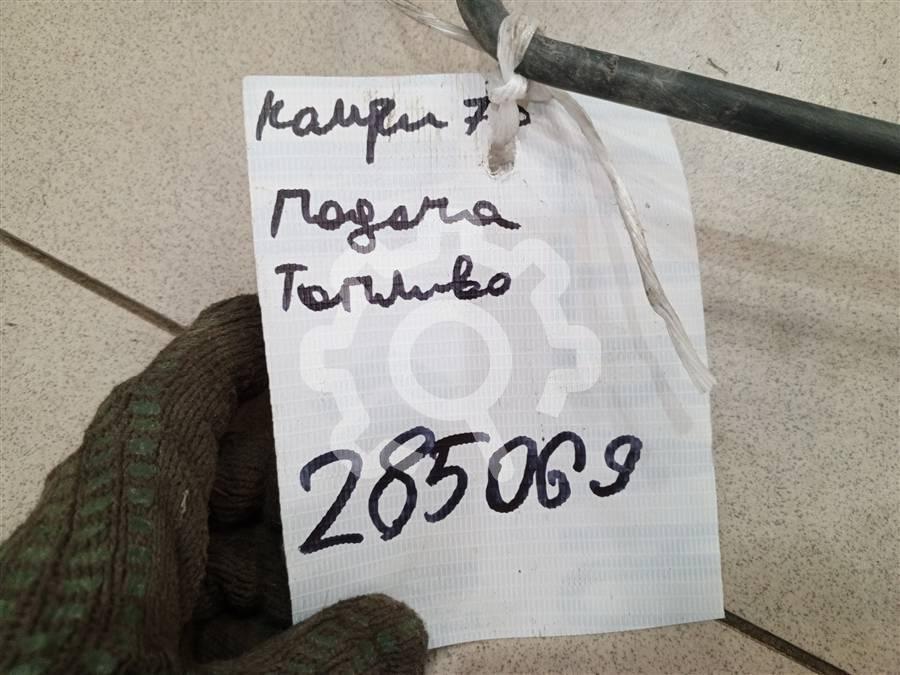 Камри 70
Подача
Топливо
285069